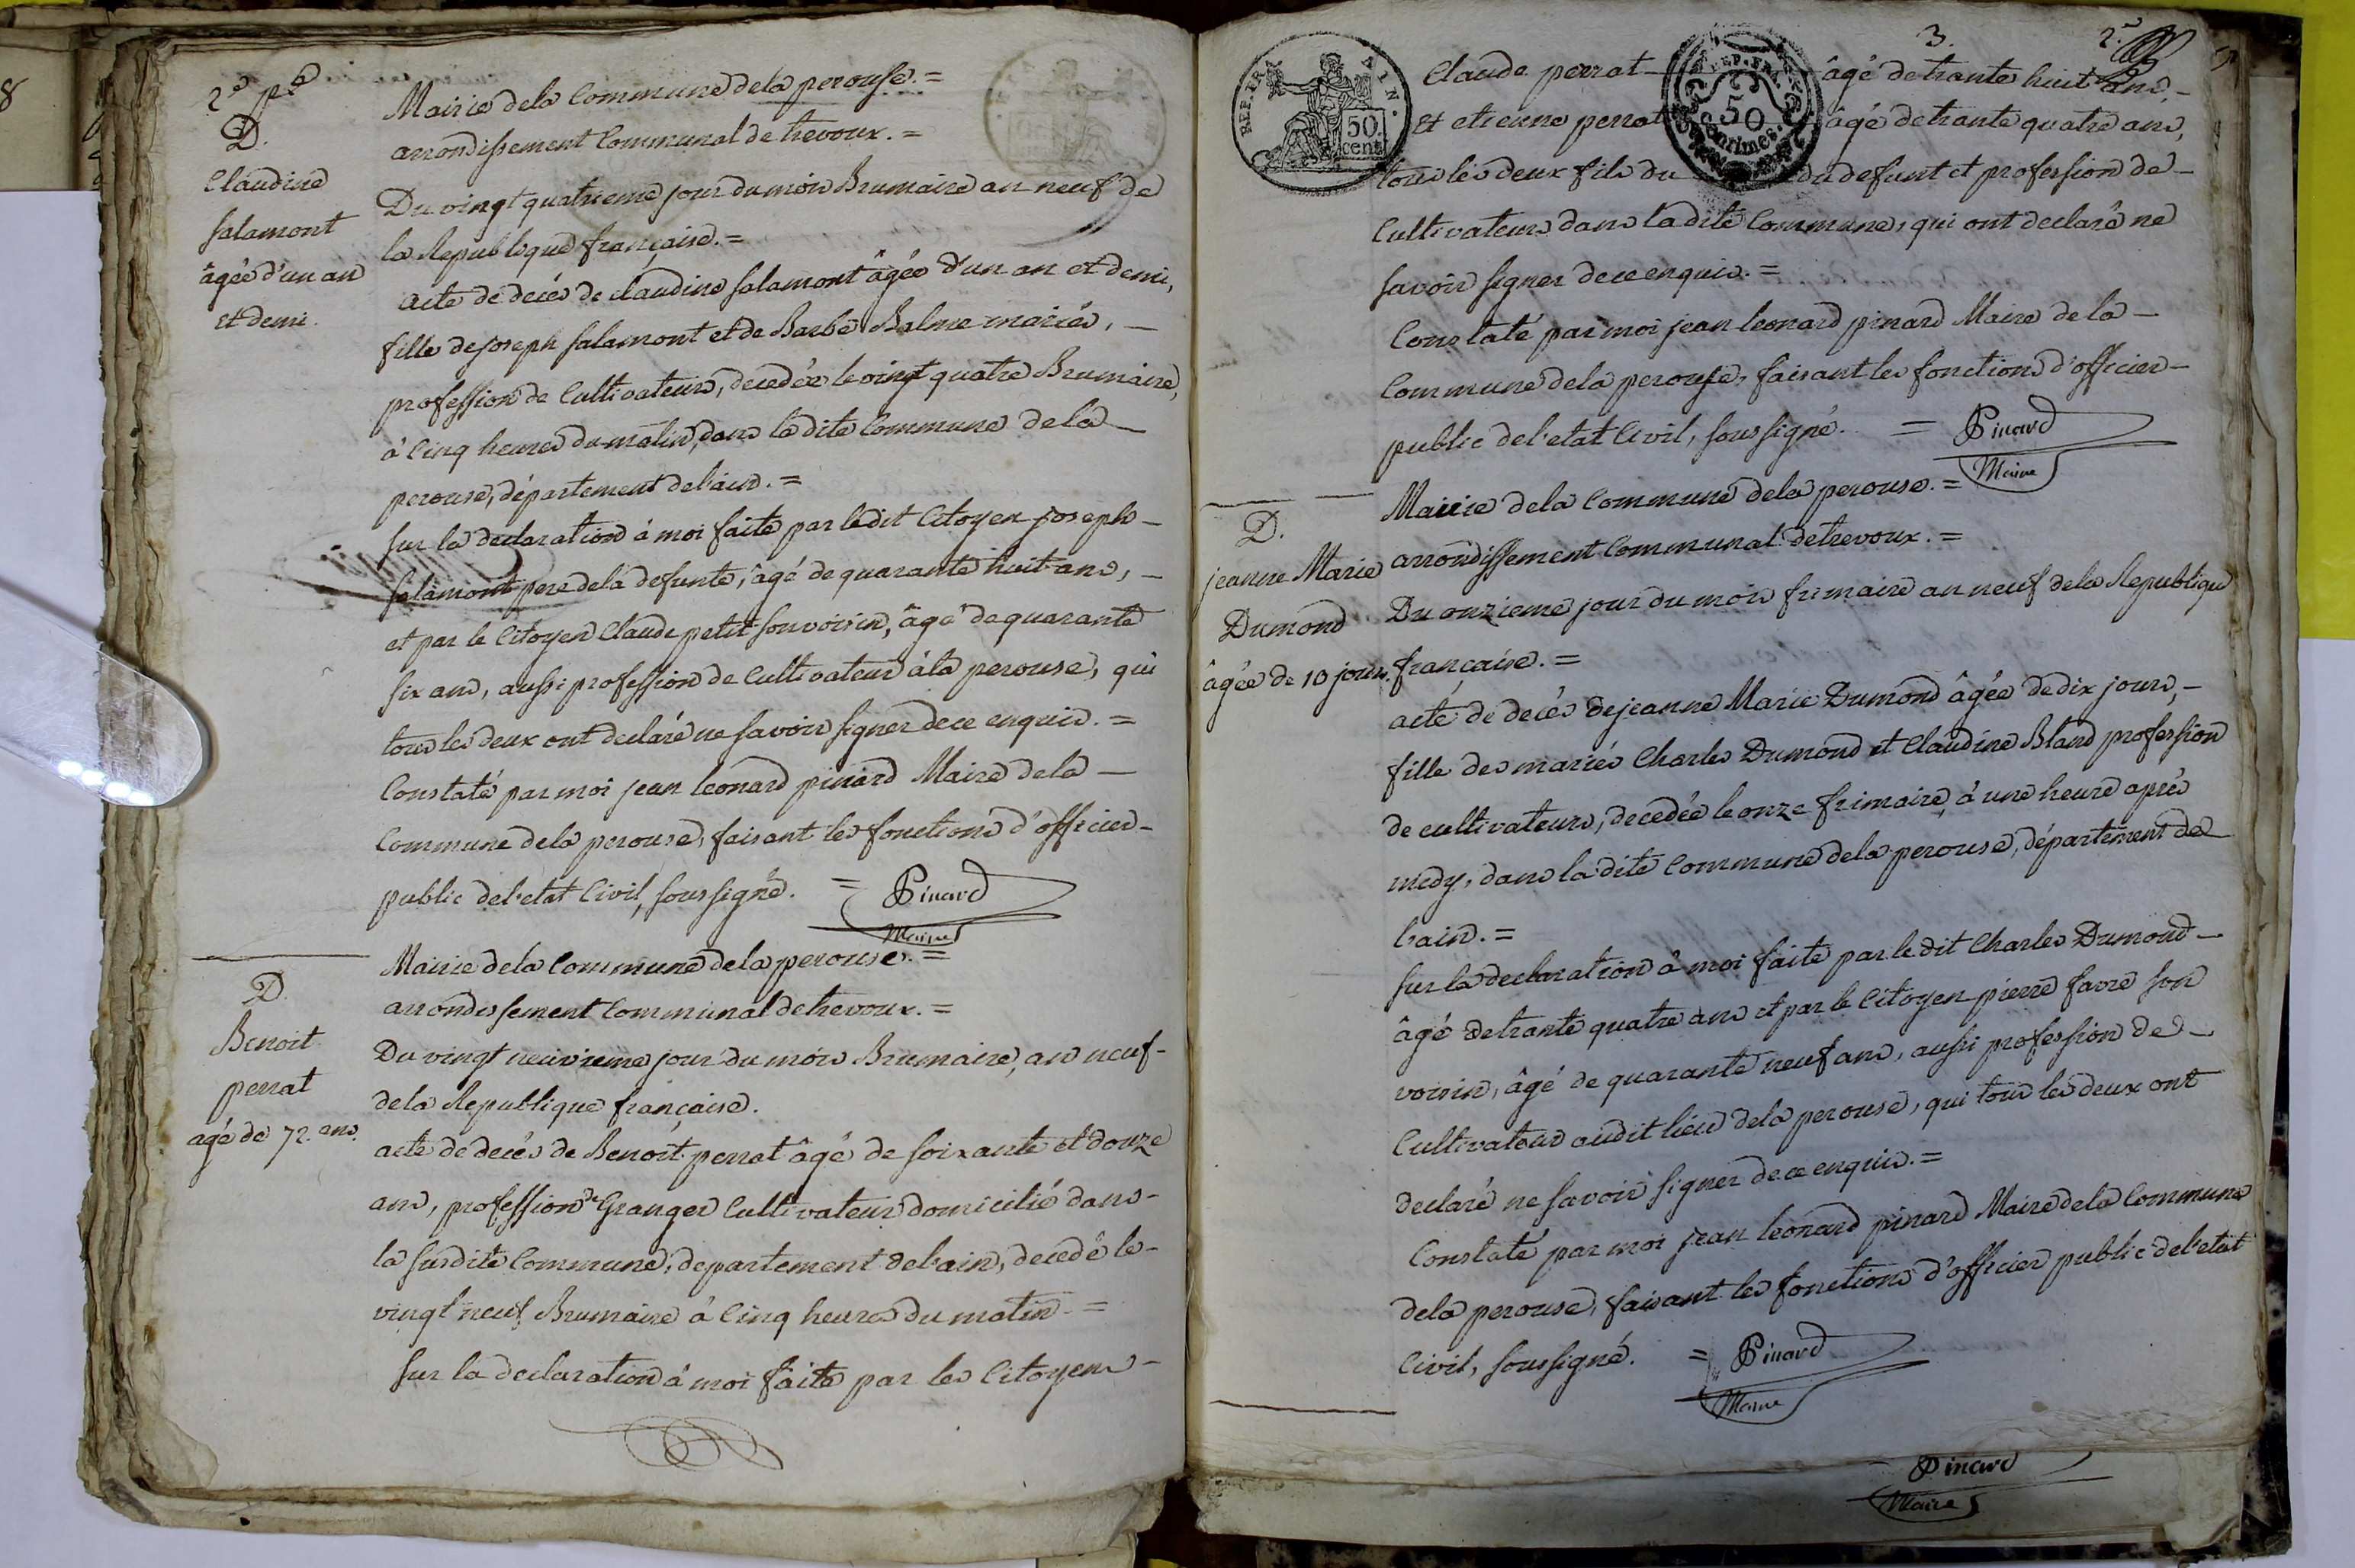 8
2e pe
D.
Claudine
salamont
âgée d'un an
et demi.
Mairie dela Commune dela perouse. =
arrondissement Communal de trevoux. =
Du vingt quatrieme jour du mois Brumaire an neuf de
la Republique française. =
acte de decés de claudine salamont âgée d'un an et demi,
fille de joseph salamont et de Barbe Balme mariés, —
profession de Cultivateurs, decedée le vingt quatre Brumaire,
à Cinq heures du matin, dans la dite Commune dela —
perouse, département del'ain. =
sur la declaration à moi faite par ledit Citoyen joseph —
salamont pere dela defunte, âgé de quarante huit ans, —
et par le Citoyen Claude petit son voisin, âgé de quarante
six ans, aussi profession de Cultivateur à la perouse, qui
tous les deux ont declaré ne savoir signer de ce enquis. =
Constaté par moi jean leonard pinard Maire dela —
Commune dela perouse, faisant les fonctions d'officier —
public del'etat Civil, soussigné. = Pinard
Maire
D.
Benoit
perrat
agé de 72. ans.
Mairie dela Commune dela perouse. =
arrondissement Communal detrevoux. =
Du vingt neuvieme jour du mois Brumaire, an neuf -
dela Republique française.
acte de decés de Benoit perrat âgé de soixante et douze
ans, profession de Granger Cultivateur domicilié dans -
la susdite Commune, departement del'ain, decedé le -
vingt neuf Brumaire à Cinq heures du matin. =
sur la declaration à moi faite par les Citoyens -
3.
2e
REP. FRA.
AIN.
50.
cent.
REP. FRA.
50
Centimes.
Claude perrat — âgé detrante huit ans, —
et etienne perrat — âgé detrante quatre ans,
tous les deux fils du dudefunt et profession de —
Cultivateurs dans la dite Commune, qui ont declaré ne
savoir signer de ce enquis. =
Constaté par moi jean leonard pinard Maire dela —
Commune dela perouse, faisant les fonctions d'officier —
public del'etat Civil, soussigné. = Pinard
Maire
D.
jeanne Marie
Dumond
âgée de 10 jours.
Mairie dela Commune dela perouse. =
arrondissement Communal detrevoux. =
Du onzieme jour du mois frimaire an neuf dela Republique
française. =
acte de decés dejeanne Marie Dumond âgée de dix jours, —
fille des mariés Charles Dumond et Claudine Bland profession
de cultivateurs, decedée le onze frimaire, à une heure après
midy, dans la dite Commune dela perouse, département de
l'ain. =
sur la declaration à moi faite par le dit Charles Dumond —
âgé detrante quatre ans et par le Citoyen pierre favre son
voisin, âgé de quarante neuf ans, aussi profession de —
Cultivateur audit lieu dela perouse, qui tous les deux ont
declaré ne savoir signer de ce enquis. =
Constaté par moi jean leonard pinard Maire dela Commune
dela perouse, faisant les fonctions d'officier public del'etat
Civil, soussigné. = Pinard
Maire
Pinard
Maire